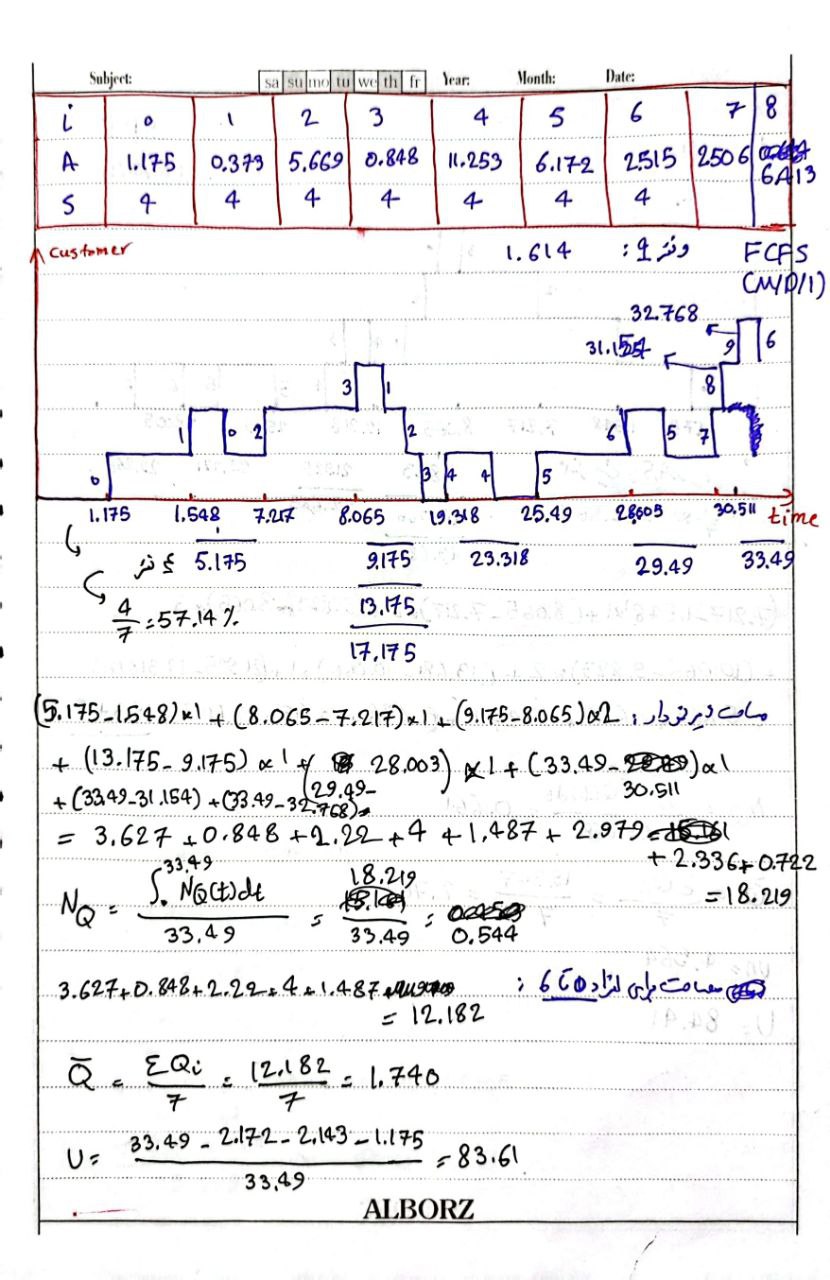 Subject:
sa su mo tu we th fr
Year: Month: Date:
i 0 1 2 3 4 5 6 7 8
A 1.175 0.373 5.669 0.848 11.253 6.172 2.515 2.506
6.413
S 4 4 4 4 4 4 4
Customer
1.614 : 9 نفر
FCFS
(M/D/1)
32.768
31.154
0 1 0 2 3 1 2 3 4 4 5 6 5 7 8 9 6
1.175 1.548 7.217 8.065 19.318 25.49 28.003 30.511 time
4 نفر 5.175 9.175 23.318 29.49 33.49
4/7 = 57.14 %
13.175
17.175
(5.175-1.548)×1 + (8.065-7.217)×1 + (9.175-8.065)×2 :
+ (13.175-9.175)×1 + (29.49-28.003)×1 + (33.49-30.511)×1
+ (33.49-31.154) + (33.49-32.768) =
= 3.627 + 0.848 + 2.22 + 4 + 1.487 + 2.979
+ 2.336 + 0.722
= 18.219
N_Q = ∫₀^33.49 N_Q(t)dt / 33.49 = 18.219 / 33.49 = 0.544
3.627 + 0.848 + 2.22 + 4 + 1.487 مساحت برای افراد 0 تا 6 :
= 12.182
Q̄ = ΣQi / 7 = 12.182 / 7 = 1.740
U = 33.49 - 2.172 - 2.143 - 1.175 / 33.49 = 83.61
ALBORZ